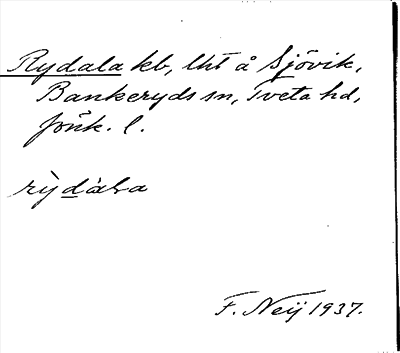 Rydala kb, lht å Sjövik,
Bankeryds sn, Tveta hd,
Jönk. l.
rỳdàla
F. Neij 1937.